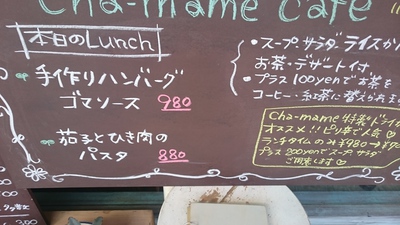 Cha-mame cafe
本日のLunch
手作りハンバーグ
ゴマソース 980
茄子とひき肉の
パスタ 880
・スープ、サラダ、ライスか
お茶・デザート付
・プラス100yenでお茶を
コーヒー・紅茶に替えられます
Cha-mame特製ドライ
オススメ!!ピリ辛で人気♡
ランチタイムのみ¥980→¥
プラス200yenでスープ、サラダ
ご用意します♡
300